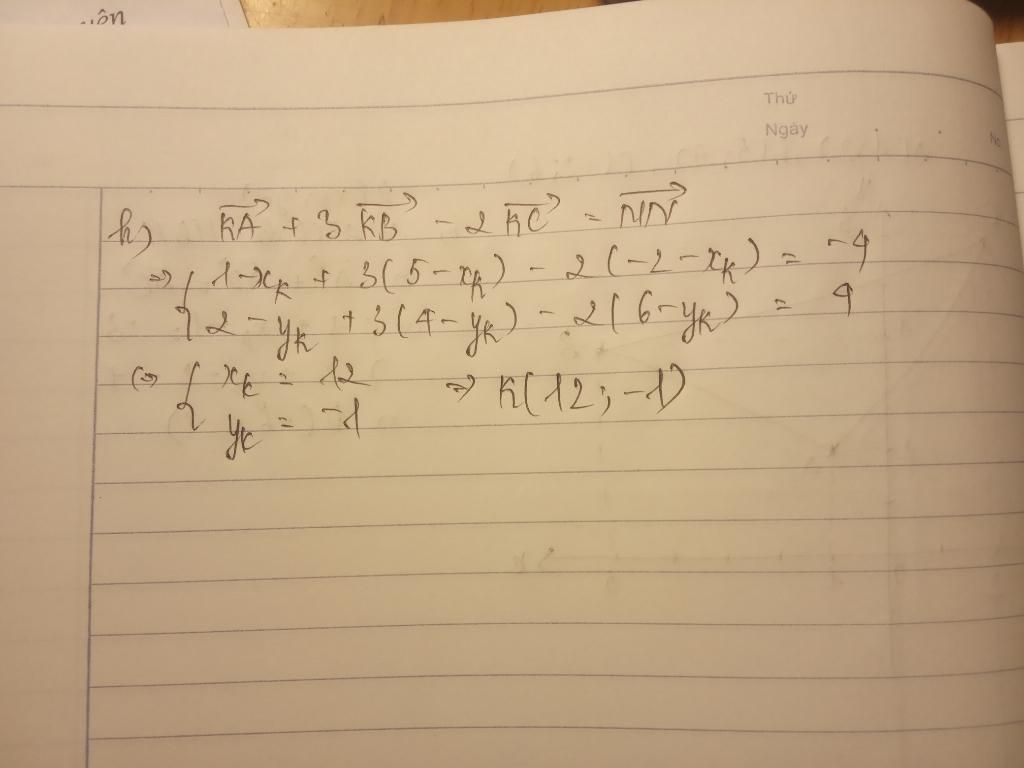 uôn
Thứ
Ngày
No
h) $\overrightarrow{KA} + 3\overrightarrow{KB} - 2\overrightarrow{KC} = \overrightarrow{MN}$
⇒ { 1 - x_K + 3(5 - x_K) - 2(-2 - x_K) = -4
{ 2 - y_K + 3(4 - y_K) - 2(6 - y_K) = 4
(⇒ { x_K = 12 ⇒ K(12; -1)
{ y_K = -1